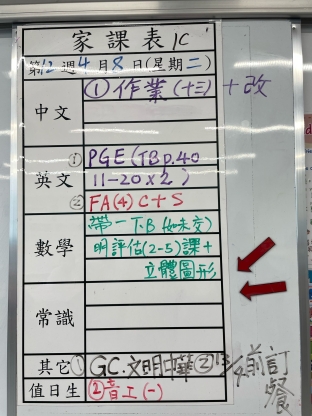 家課表 1C
第12週4月8日(星期二)
中文 ①作業(十三)+改
英文 ①PGE(TB p.40
11-20 x2)
②FA(4) C+S
數學 帶一下B(如未交)
明評估(2-5)課+
立體圖形
常識
其它 ①GC.文明中華②13/4前訂
餐
值日生 ②音工(一)